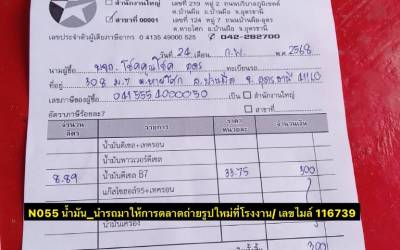 สำนักงานใหญ่ เลขที่ 219 หมู่ 2 ถนนบริบาลภูมิเขตต์
ต.บ้านผือ อ.บ้านผือ จ.อุดรธานี
สาขาที่ 00001 เลขที่ 124 หมู่ 7 ถนนบ้านผือ-อุดร
ต.หายโศก อ.บ้านผือ จ.อุดรธานี
เลขประจำตัวผู้เสียภาษีอากร 0 4135 49000 525 042-282700
วันที่ 24 เดือน ก.พ. 2568
นามผู้ซื้อ บจก. โชคคูณโชค อุดร ทะเบียนรถ
ที่อยู่ 308 ม.7 ต.หายโศก อ.บ้านผือ จ.อุดรธานี 41160
เลขภาษีของผู้ซื้อ 0415554000050 เป็น สำนักงานใหญ่
สาขาที่
อัตราภาษีร้อยละ 7
จำนวน ลิตร รายการ ราคา หน่วยละ จำนวนเงิน
น้ำมันดีเซล+เทครอน
น้ำมันพาวเวอร์ดีเซล
8.89 น้ำมันดีเซล B7 33.75 300
แก๊สโซฮอล์95+เทครอน
N055 น้ำมัน_นำรถมาให้การตลาดถ่ายรูปใหม่ที่โรงงาน/ เลขไมล์ 116739
น้ำมันเครื่อง
300